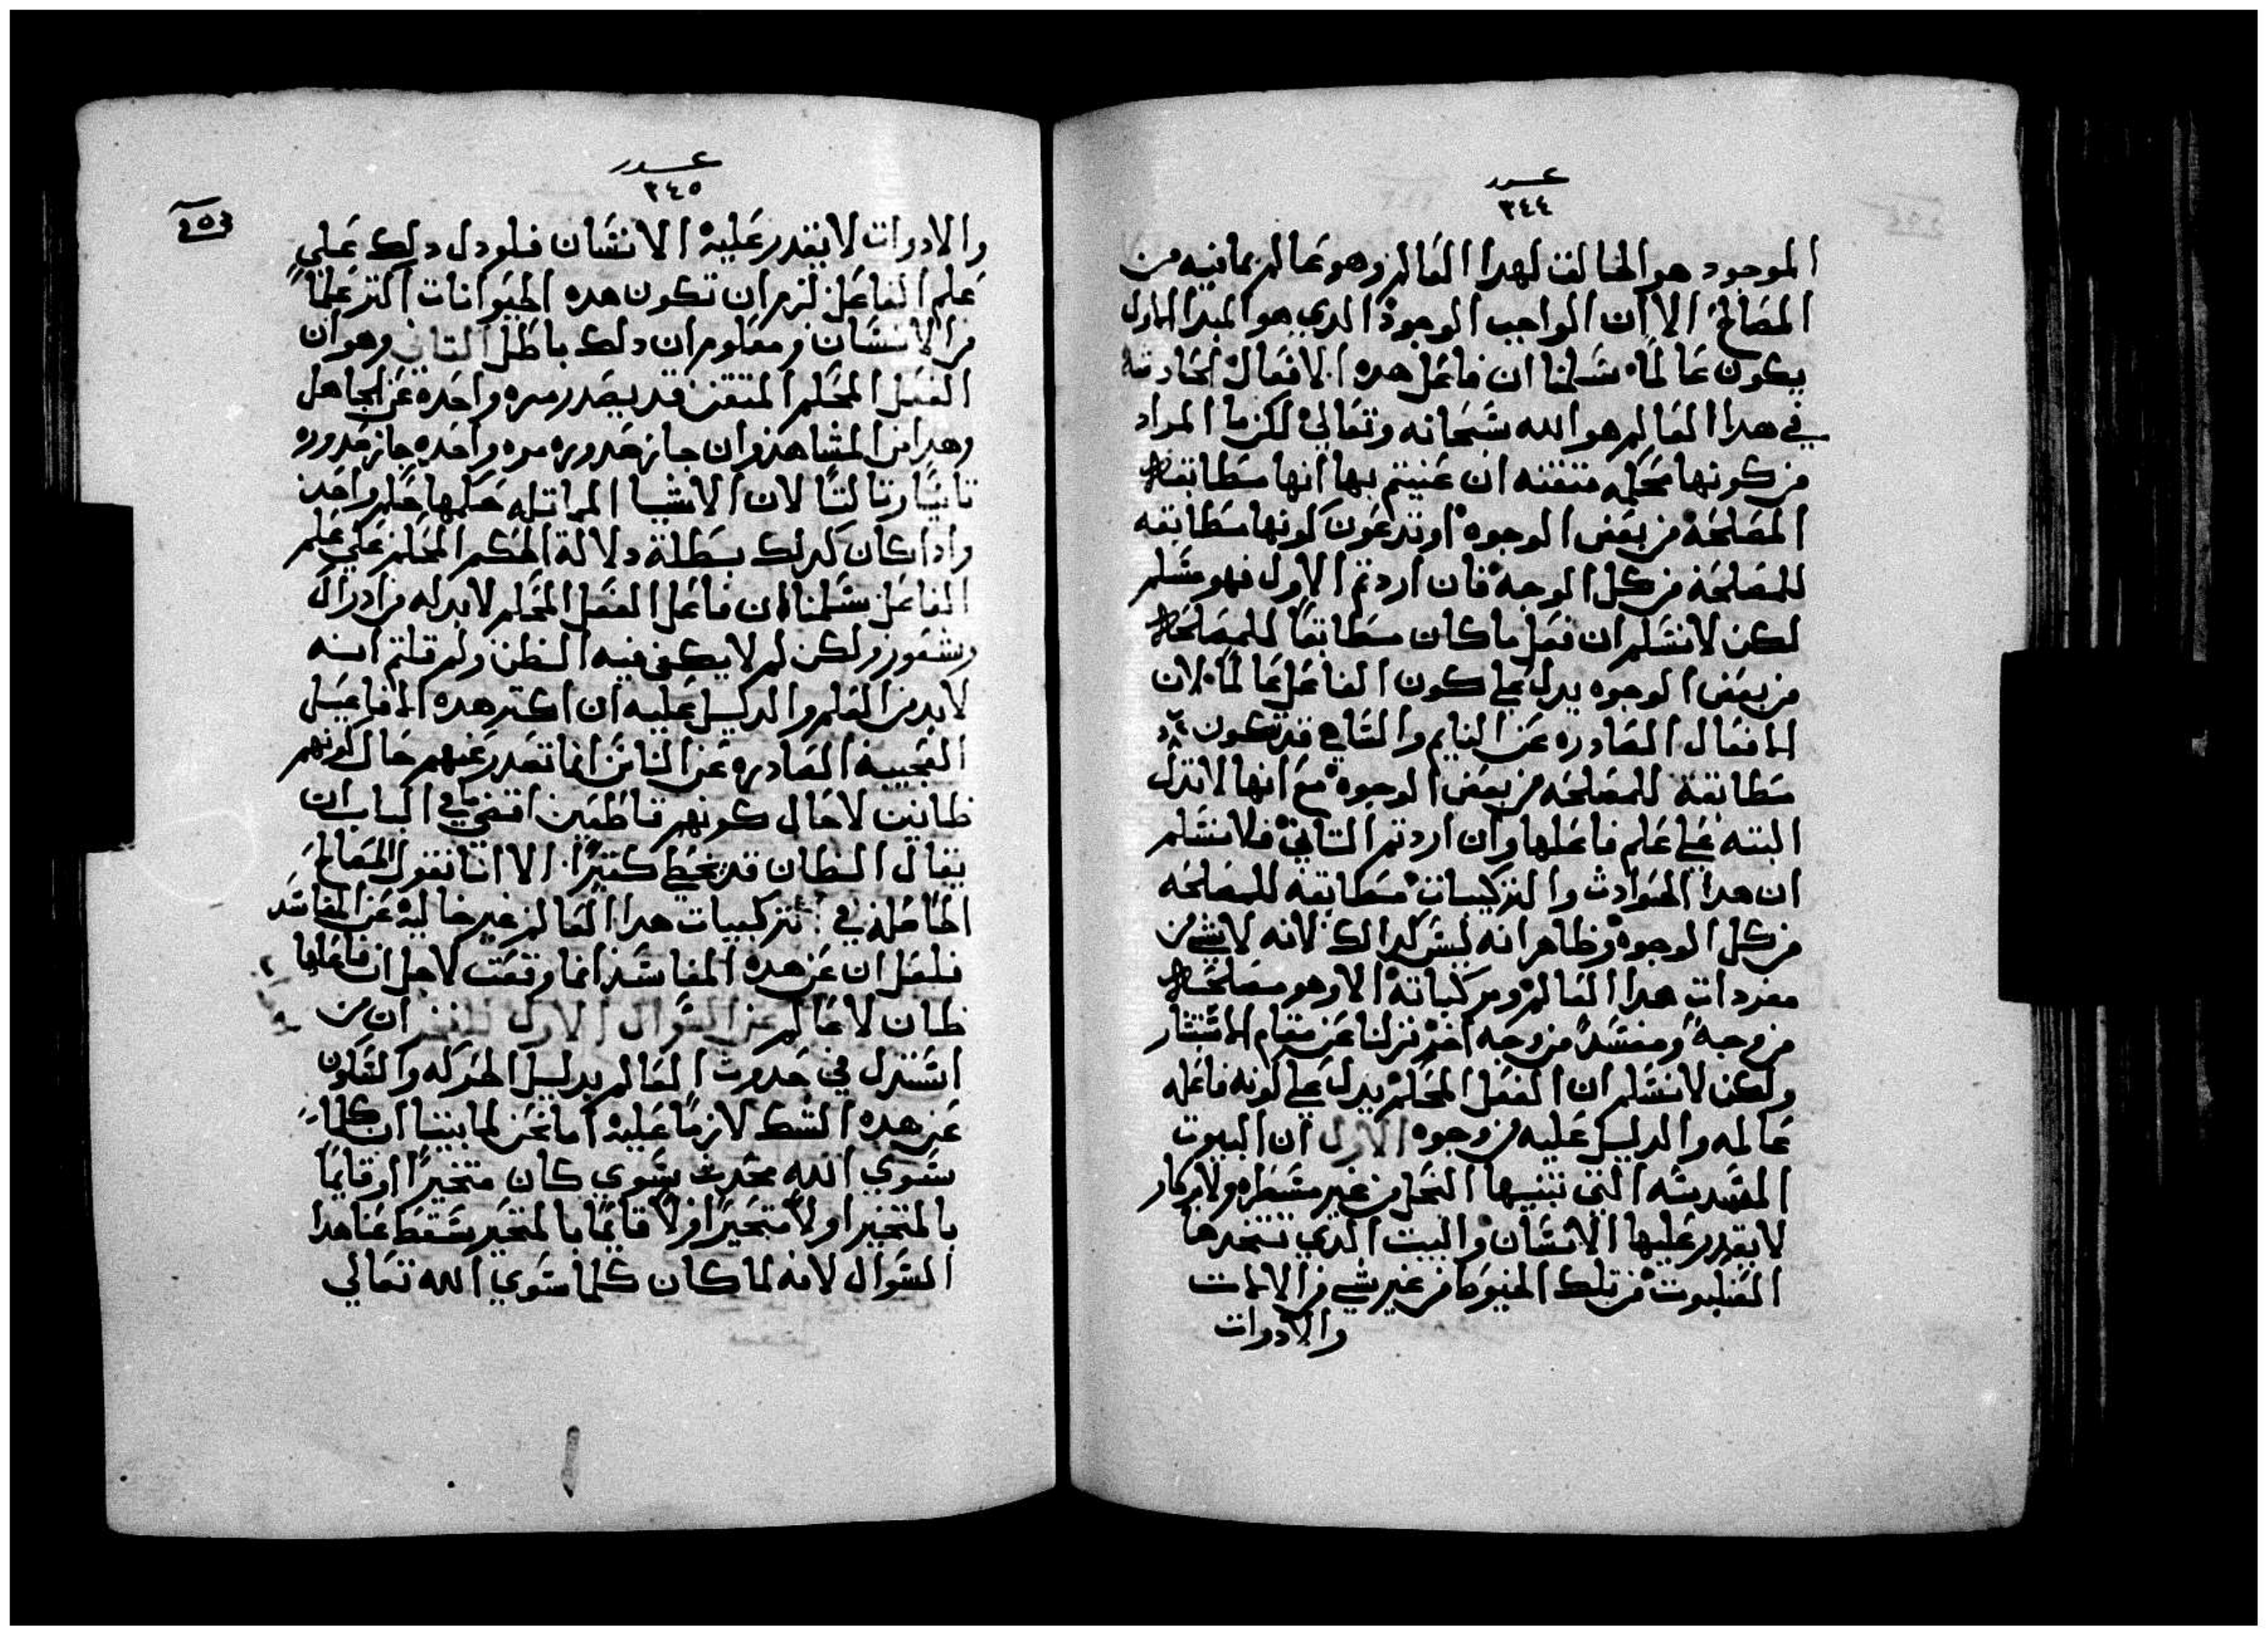 عدد
٣٤٤
الموجود هو الخالق لهدا العالم وهو عالم بما فيه من
المصالح الا ان الواجب الوجود الدي هو المبدا الاول
يكون عالماً سلمنا ان فاعل هده الافعال الحادثه
في هدا العالم هو الله سبحانه وتعالي لكن ما المراد
من كونها محكمه متقنه ان عنيتم بها انها مطابقة
المصلحه من بعض الوجوه او تدعون كونها مطابقه
للمصلحه من كل الوجه فان اردتم الاول فهو مسلم
لكن لا نسلم ان فعل ما كان مطابقاً للمصلحة
من بعض الوجوه يدل علي كون الفاعل عالماً لان
الافعال الصادره عن النايم والساهي قد تكون
مطابقة للمصلحه من بعض الوجوه مع انها لا تدل
البته علي علم فاعلها وان اردتم التاني فلا نسلم
ان هدا الحوادث والتركيبات مطابقه للمصلحه
من كل الوجوه وظاهر انه ليس كدالك لانه لا شي من
مفردات هدا العالم ومركباته الا وهو مصلحة
من وجه ومفسد من وجه اخر نزلنا عن مقام الاستتار
ولكن لا نسلم ان الفعل المحكم يدل علي كونه فاعله
عالمه والدليل عليه من وجوه الاول ان البيوت
المسدسه التي تبنيها النحل من غير مسطره ولا بركار
لا يقدر عليها الانسان والبيت الدي تتخدها
العنكبوت من تلك الخيوط من غير شي من الالات
والادوات
عدد
٣٤٥
والادوات لا يقدر عليه الانسان فلو دل دلك علي
علم الفاعل لزم ان تكون هده الحيوانات اكتر علماً
من الانسان ومعلوم ان دلك باطل التاني وهو ان
الفعل المحكم المتقن قد يصدر مره واحده عن الجاهل
وهدا من المشاهد وان جاز حدوره مره واحده جاز حدوره
تانياً وتالتاً لان الاشيا المماتله حكمها حكم واحد
وادا كان كدلك بطلة دلالة الحكم المحكم علي علم
الفاعل سلمنا ان فاعل الفعل المحكم لابد له من ادراك
وشعور ولكن لم لا يكفي فيه الظن ولم قلتم انه
لابد من العلم والدليل عليه ان اكتر هده الافاعيل
العجيبة الصادره عن الناس انما تصدر عنهم حال كونهم
ظانين لا حال كونهم قاطعين اقصي ما في الباب ان
يقال الظان قد يخطي كتيراً الا انا نقول المصالح
الحاصله في تركيبات هدا العالم غير خاليه عن المفاسد
فلعل ان عن هده المفاسد انما وقعت لاجل ان فاعلها
ظان لا عالم عن السوال الاول ان من
استدل في حدوت العالم بدليل الحركه والسكون
عن هده الشك لازماً عليه اما نحن لما بينا ان كلما
سوي الله محدت سوي كان متحيزاً او قايماً
بالمتحيز او لا متحيزاً ولا قايماً بالمتحيز سقط عنا هدا
السوال لانه لما كان كلما سوي الله تعالي